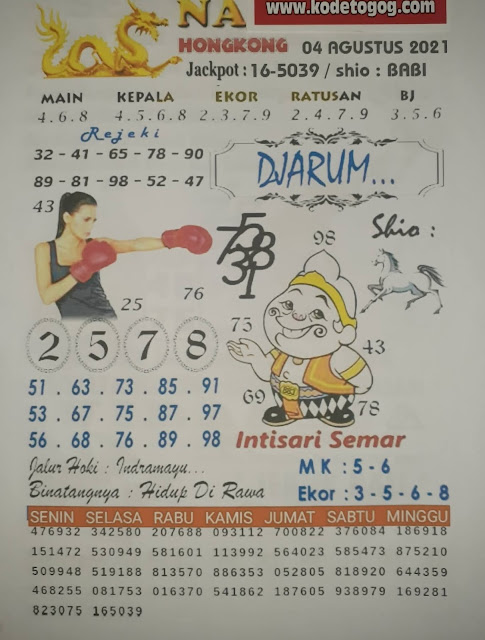 www.kodetogog.com
NA
HONGKONG 04 AGUSTUS 2021
Jackpot : 16-5039 / shio : BABI
MAIN KEPALA EKOR RATUSAN BJ
4.6.8 4.5.6.8 2.3.7.9 2.4.7.9 3.5.6
Rejeki
32 - 41 - 65 - 78 - 90
89 - 81 - 98 - 52 - 47
DJARUM...
43
Shio :
98
25
76
73
43
69
78
2 5 7 8
51 . 63 . 73 . 85 . 91
53 . 67 . 75 . 87 . 97
56 . 68 . 76 . 89 . 98
Intisari Semar
Jalur Hoki : Indramayu...
Binatangnya : Hidup Di Rawa
M K : 5 - 6
Ekor : 3 - 5 - 6 - 8
SENIN SELASA RABU KAMIS JUMAT SABTU MINGGU
476932 342580 207688 093112 700822 376084 186918
151472 530949 581601 113992 564023 585473 875210
509948 519188 813570 886353 052805 818920 644359
468255 081753 016370 541862 187605 938979 169281
823075 165039